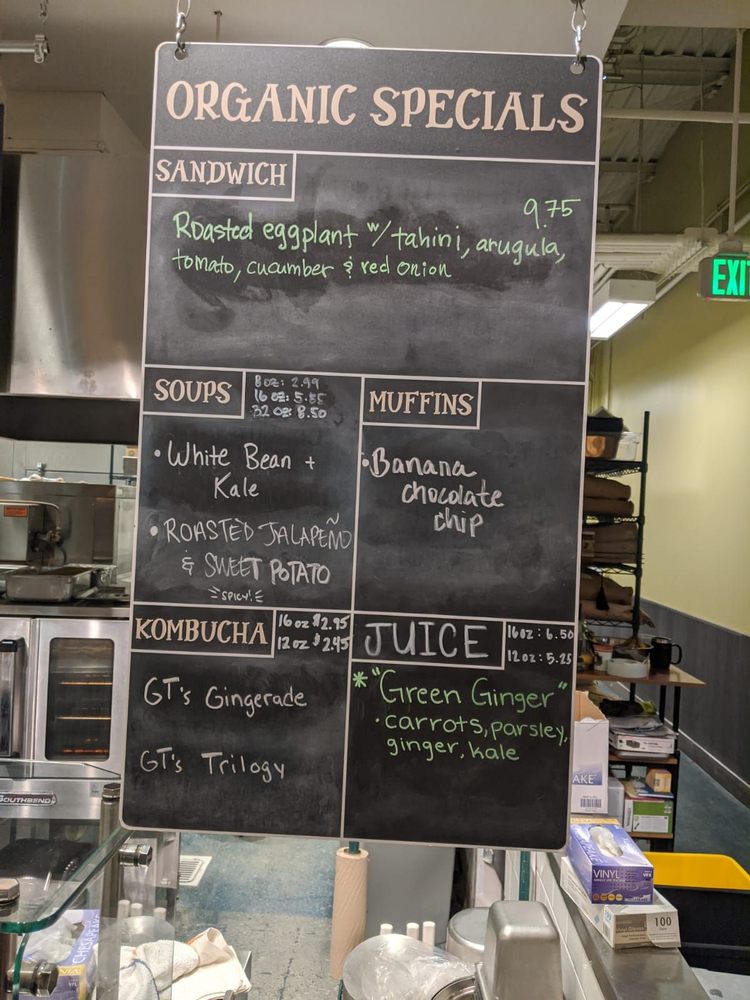 ORGANIC SPECIALS
SANDWICH
9.75
Roasted eggplant w/ tahini, arugula,
tomato, cucumber & red onion
SOUPS
8 oz: 2.99
16 oz: 5.55
32 oz: 8.50
• White Bean +
Kale
• ROASTED JALAPEÑO
& SWEET POTATO
SPICY!
MUFFINS
• Banana
chocolate
chip
KOMBUCHA
16 oz $2.95
12 oz $2.45
GT's Gingerade
GT's Trilogy
JUICE
16oz: 6.50
12oz: 5.25
* "Green Ginger"
• carrots, parsley,
ginger, kale
EXIT
SOUTHBEND
AKE
VINYL
100
CHESAPEAKE